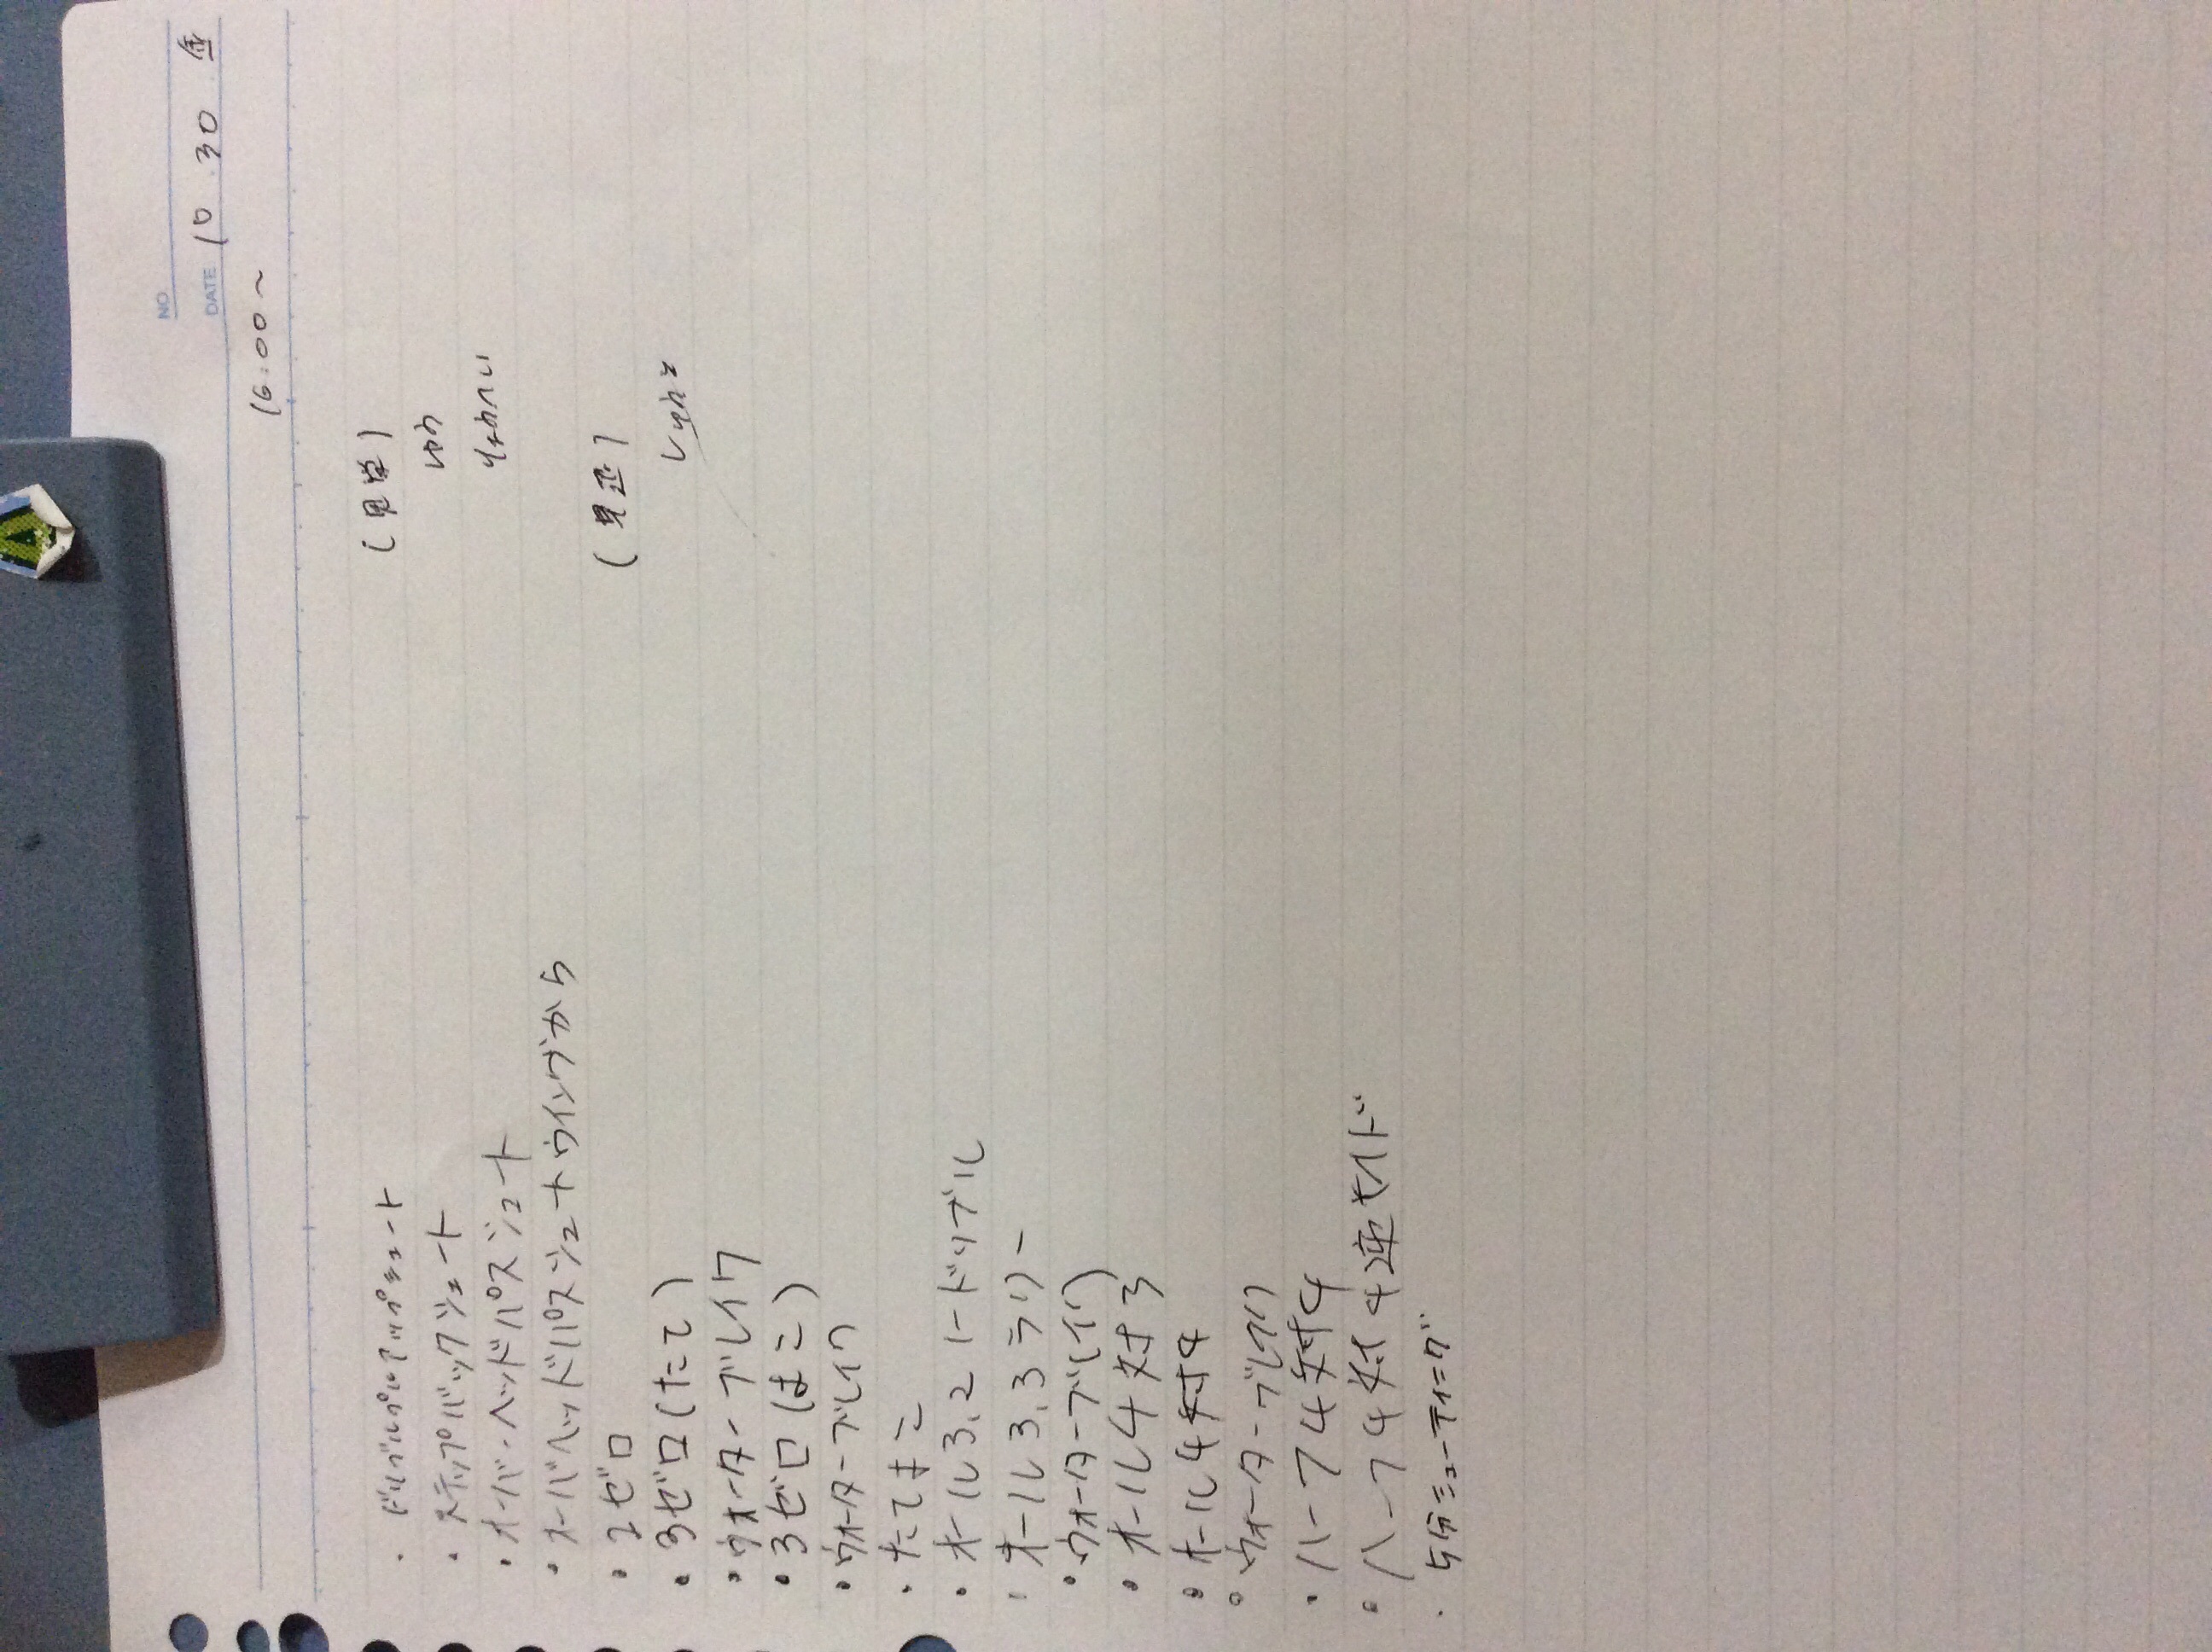 NO
DATE 10 . 30 . 金
16:00〜
(見学)
ゆう
りょうへい
・ドリブルプルアップシュート
・ステップバックシュート
・オーバーヘッドパスシュート
・オーバヘッドパスシュートウイングから
・2ゼロ
・3ゼロ(たて)
・ウォーターブレイク
・3ゼロ(はこ)
・ウォーターブレイク
・たてよこ
・オール3、2 1ードリブル
・オール3、3ラリー
・ウォーターブレイク)
・オール4対3
・オール4対4
・ウォーターブレイク
・ハーフ4対4
・ハーフ4対4逆サイド
・5分ミューティーング